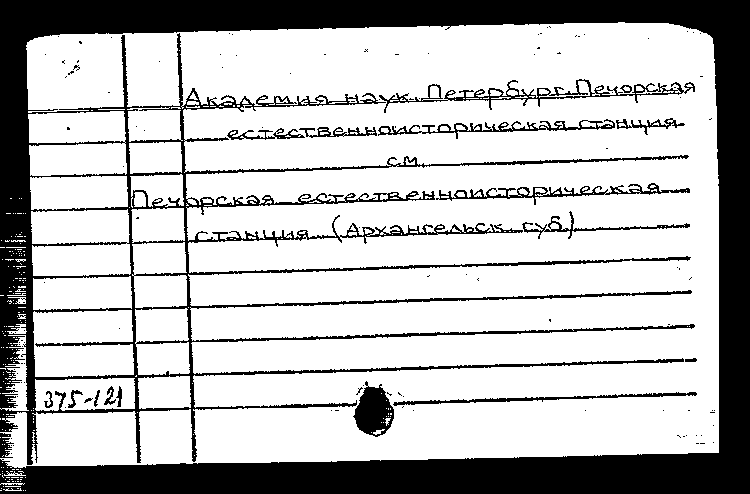 Академия наук. Петербург. Печорская
естественноисторическая станция
см.
Печорская естественноисторическая
станция (Архангельск. губ.)
375-121